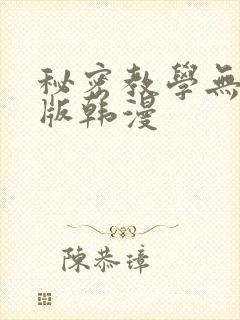 秘密教學無
版韩漫
陳恭璋